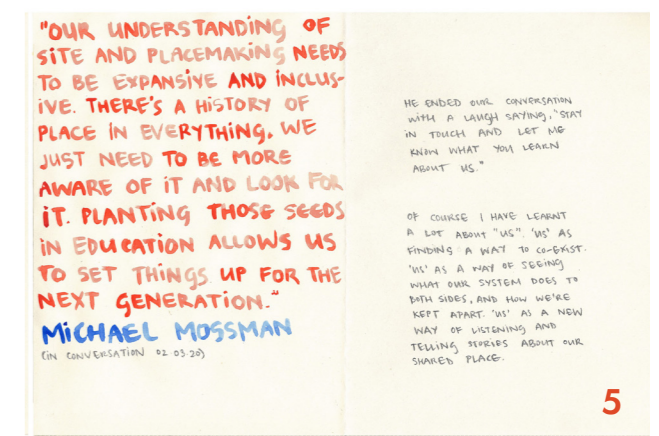 "OUR UNDERSTANDING OF
SITE AND PLACEMAKING NEEDS
TO BE EXPANSIVE AND INCLUS-
IVE. THERE'S A HISTORY OF
PLACE IN EVERYTHING. WE
JUST NEED TO BE MORE
AWARE OF IT AND LOOK FOR
IT. PLANTING THOSE SEEDS
IN EDUCATION ALLOWS US
TO SET THINGS UP FOR THE
NEXT GENERATION."
MICHAEL MOSSMAN
(IN CONVERSATION 02.03.20)
HE ENDED OUR CONVERSATION
WITH A LAUGH SAYING, "STAY
IN TOUCH AND LET ME
KNOW WHAT YOU LEARN
ABOUT US."
OF COURSE I HAVE LEARNT
A LOT ABOUT "US". 'US' AS
FINDING A WAY TO CO-EXIST.
'US' AS A WAY OF SEEING
WHAT OUR SYSTEM DOES TO
BOTH SIDES, AND HOW WE'RE
KEPT APART. 'US' AS A NEW
WAY OF LISTENING AND
TELLING STORIES ABOUT OUR
SHARED PLACE.
5